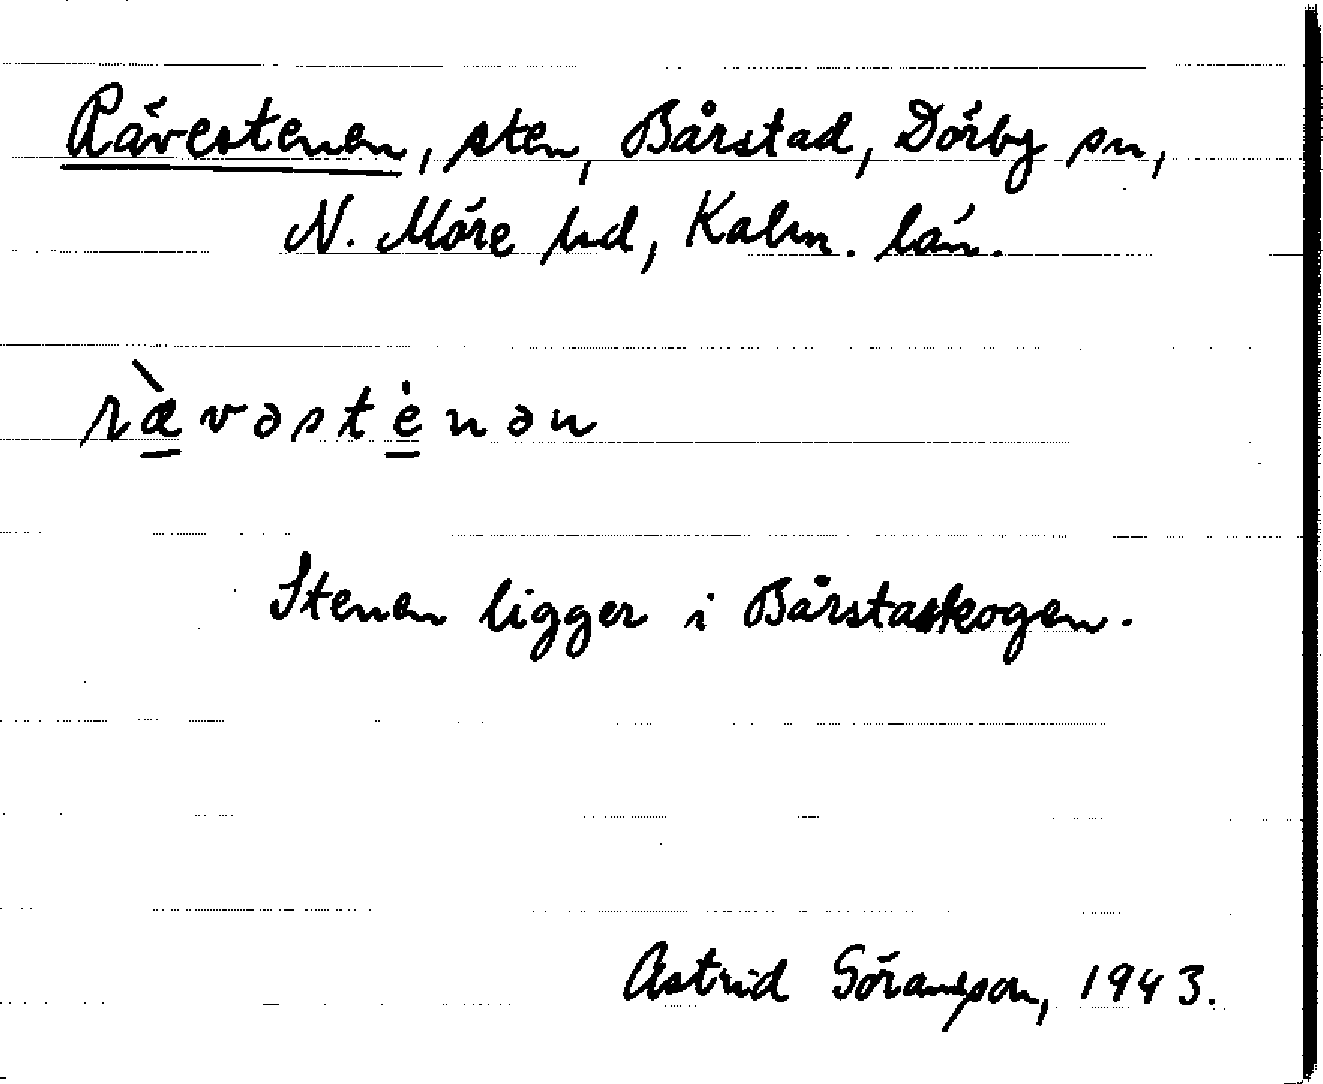 Rävestenen, sten, Bårstad, Dörby sn,
N. Möre hd, Kalm. län.
ræ̀vəstėnən
Stenen ligger i Bårstaskogen.
Astrid Göransson, 1943.